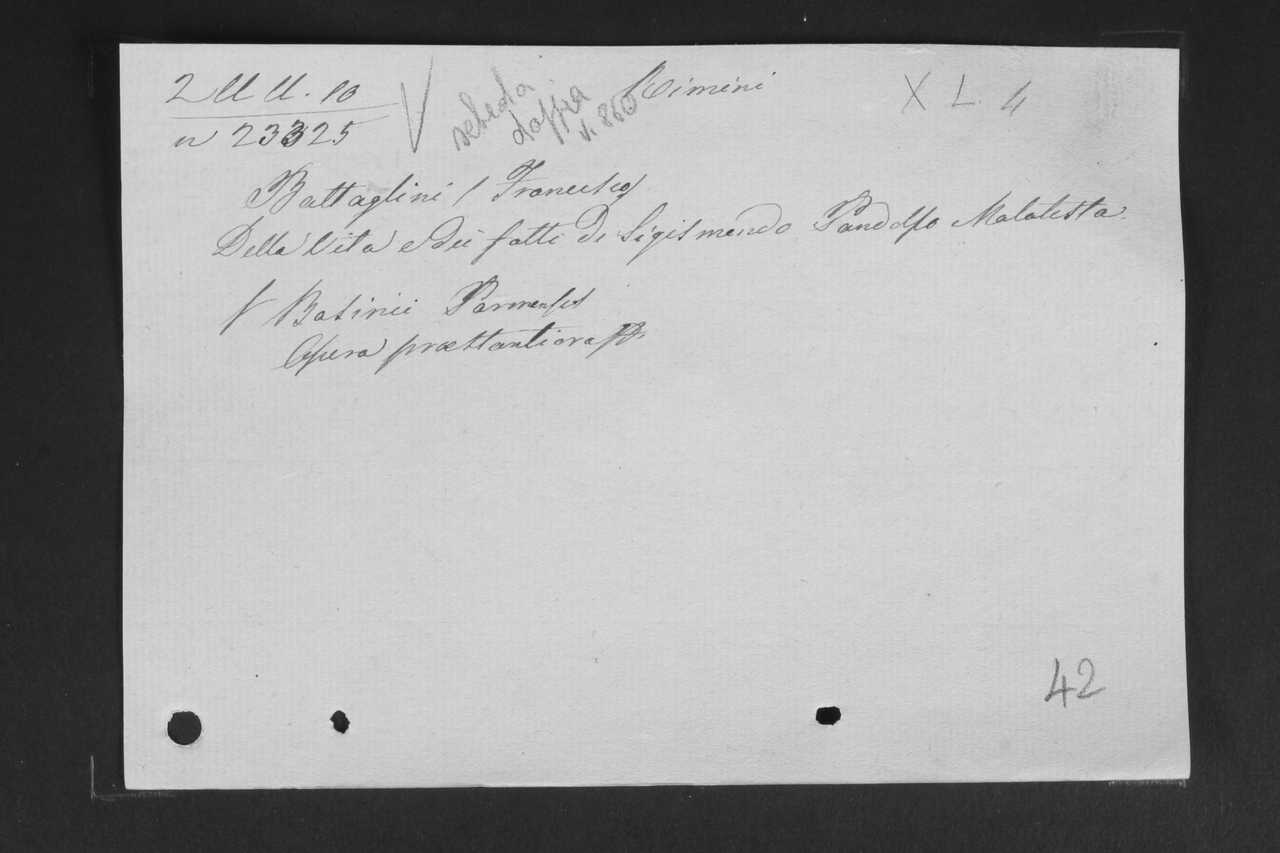 2 U U. 10
n 23325
V
scheda
doppia
v. 860
Rimini
X L. 4
Battaglini (Francesco)
Della Vita e dei fatti di Sigismondo Pandolfo Malatesta.
V Basinii Parmensis
Opera præstantiora
42